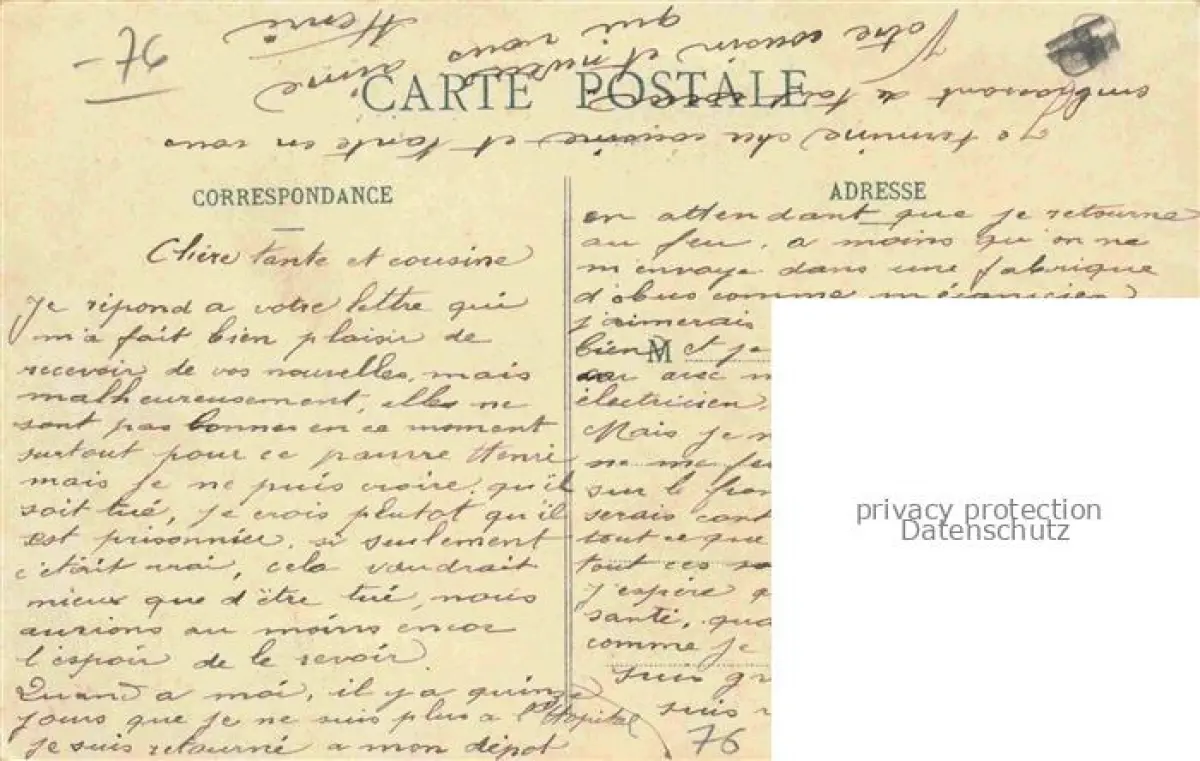 CARTE POSTALE
CORRESPONDANCE
Chère tante et cousine
Je répond a votre lettre qui
m'a fait bien plaisir de
recevoir de vos nouvelles, mais
malheureusement, elles ne
sont pas bonnes en ce moment
surtout pour ce pauvre Henri
mais je ne puis croire, qu'il
soit tué, je crois plutot qu'il
est prisonnier, si seulement
c'était vrai, cela vaudrait
mieux que d'être tué, nous
aurions au moins encor
l'espoir de le revoir.
Quand a moi, il y a quinze
jours que je ne suis plus a l'Hopital
je suis retourné a mon dépot
ADRESSE
en attendant que je retourne
au feu, a moins qu'on ne
m'envoye dans une fabrique
d'obus comme mécanicien
j'aimerais
bien et je
M
avec
électricien.
Mais je
ne me
sur le
serais
tout ce que
tout ces
j'espère
santé,
comme je
suis
suis
76
Je termine cher cousine et tante en vous
embrassant de tout
Votre cousin et neveu
qui vous aime
Henri
privacy protection
Datenschutz